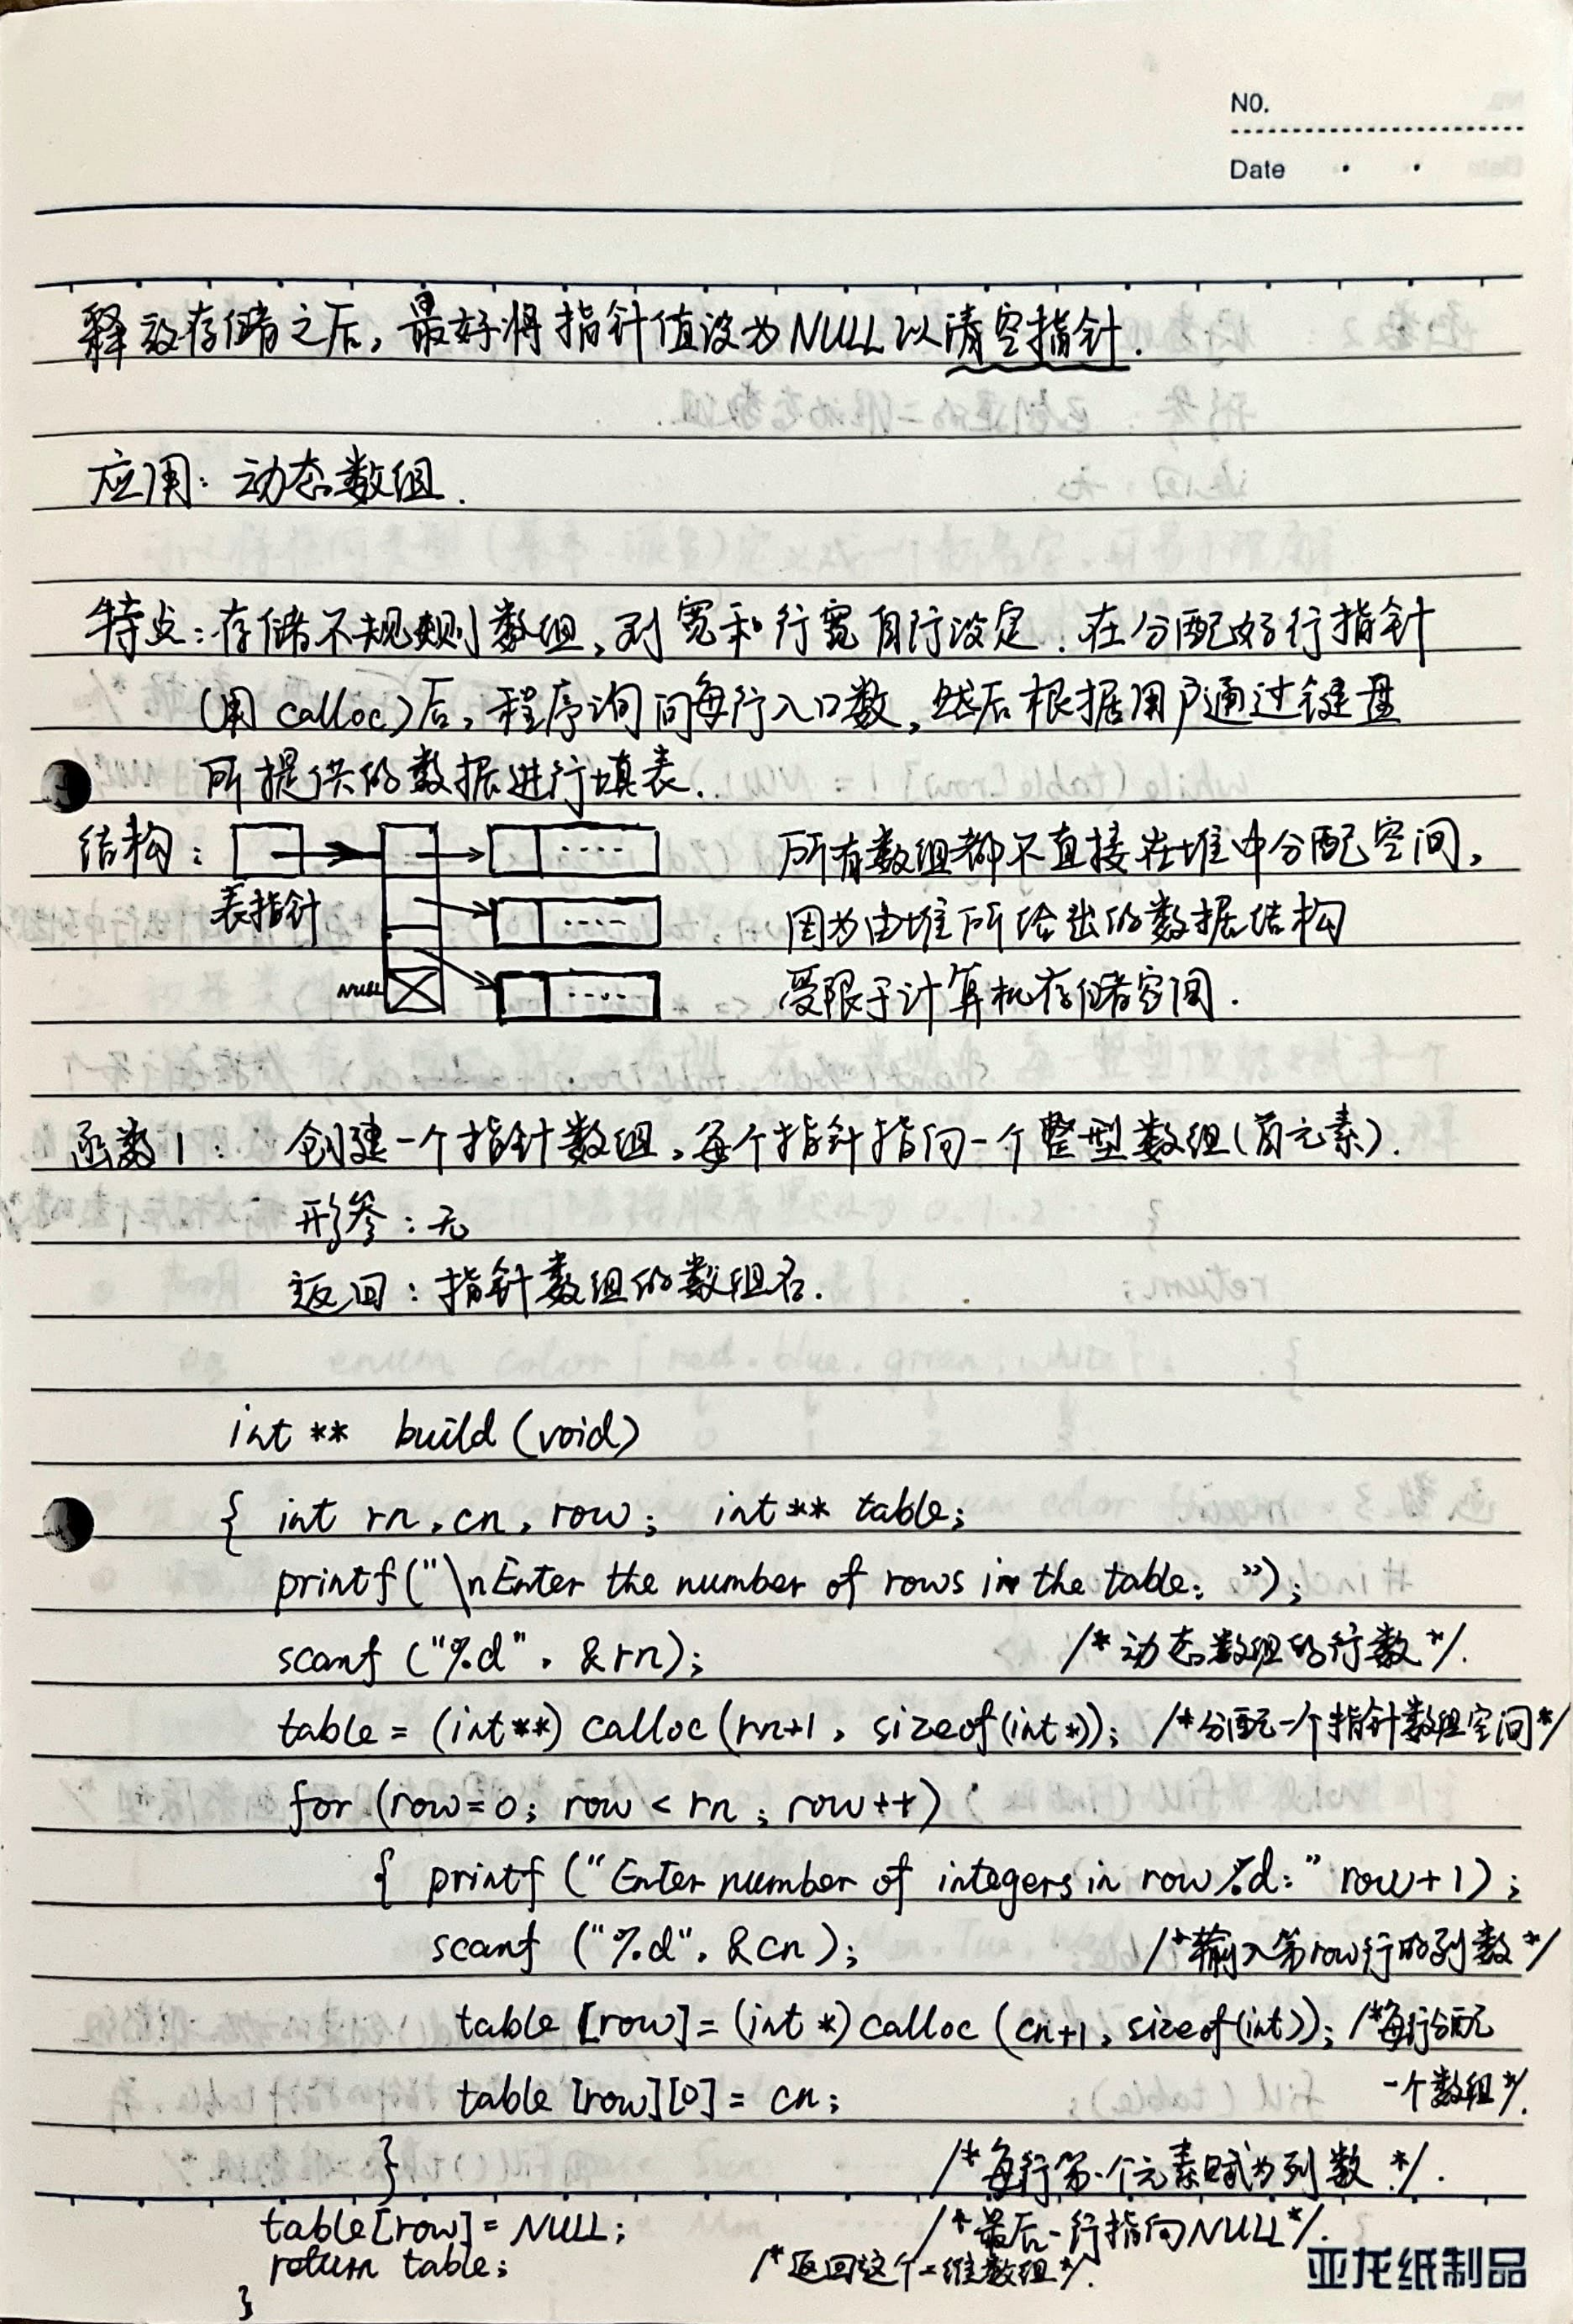 NO.
Date
释放存储之后,最好将指针值设为NULL以清空指针.
应用:动态数组.
特点:存储不规则数组,列宽和行宽自行设定.在分配好行指针
(用 calloc)后,程序询问每行入口数,然后根据用户通过键盘
所提供的数据进行填表.
结构: 所有数组都不直接在堆中分配空间,
表指针 因为由堆所给出的数据结构
NULL 受限于计算机存储空间.
函数1: 创建一个指针数组,每个指针指向一个整型数组(首元素).
形参:无
返回:指针数组的数组名.
int ** build (void)
{ int rn, cn, row; int ** table;
printf("\nEnter the number of rows in the table: ");
scanf ("%d", &rn); /* 动态数组的行数 */.
table = (int**) calloc (rn+1, sizeof(int*)); /*分配一个指针数组空间*/
for (row=0; row < rn; row++)
{ printf ("Enter number of integers in row %d:" row+1);
scanf ("%d", &cn); /*输入第row行的列数*/
table [row] = (int *) calloc (cn+1, sizeof(int)); /*每行分配
table [row][0] = cn; 一个数组*/.
} /*每行第一个元素赋为列数*/.
table[row] = NULL; /*最后一行指向NULL*/.
return table; /*返回这个二维数组*/.
}
亚龙纸制品